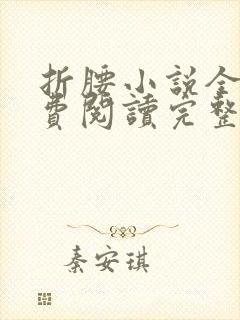 折腰小説全
費閱讀完整
秦安琪